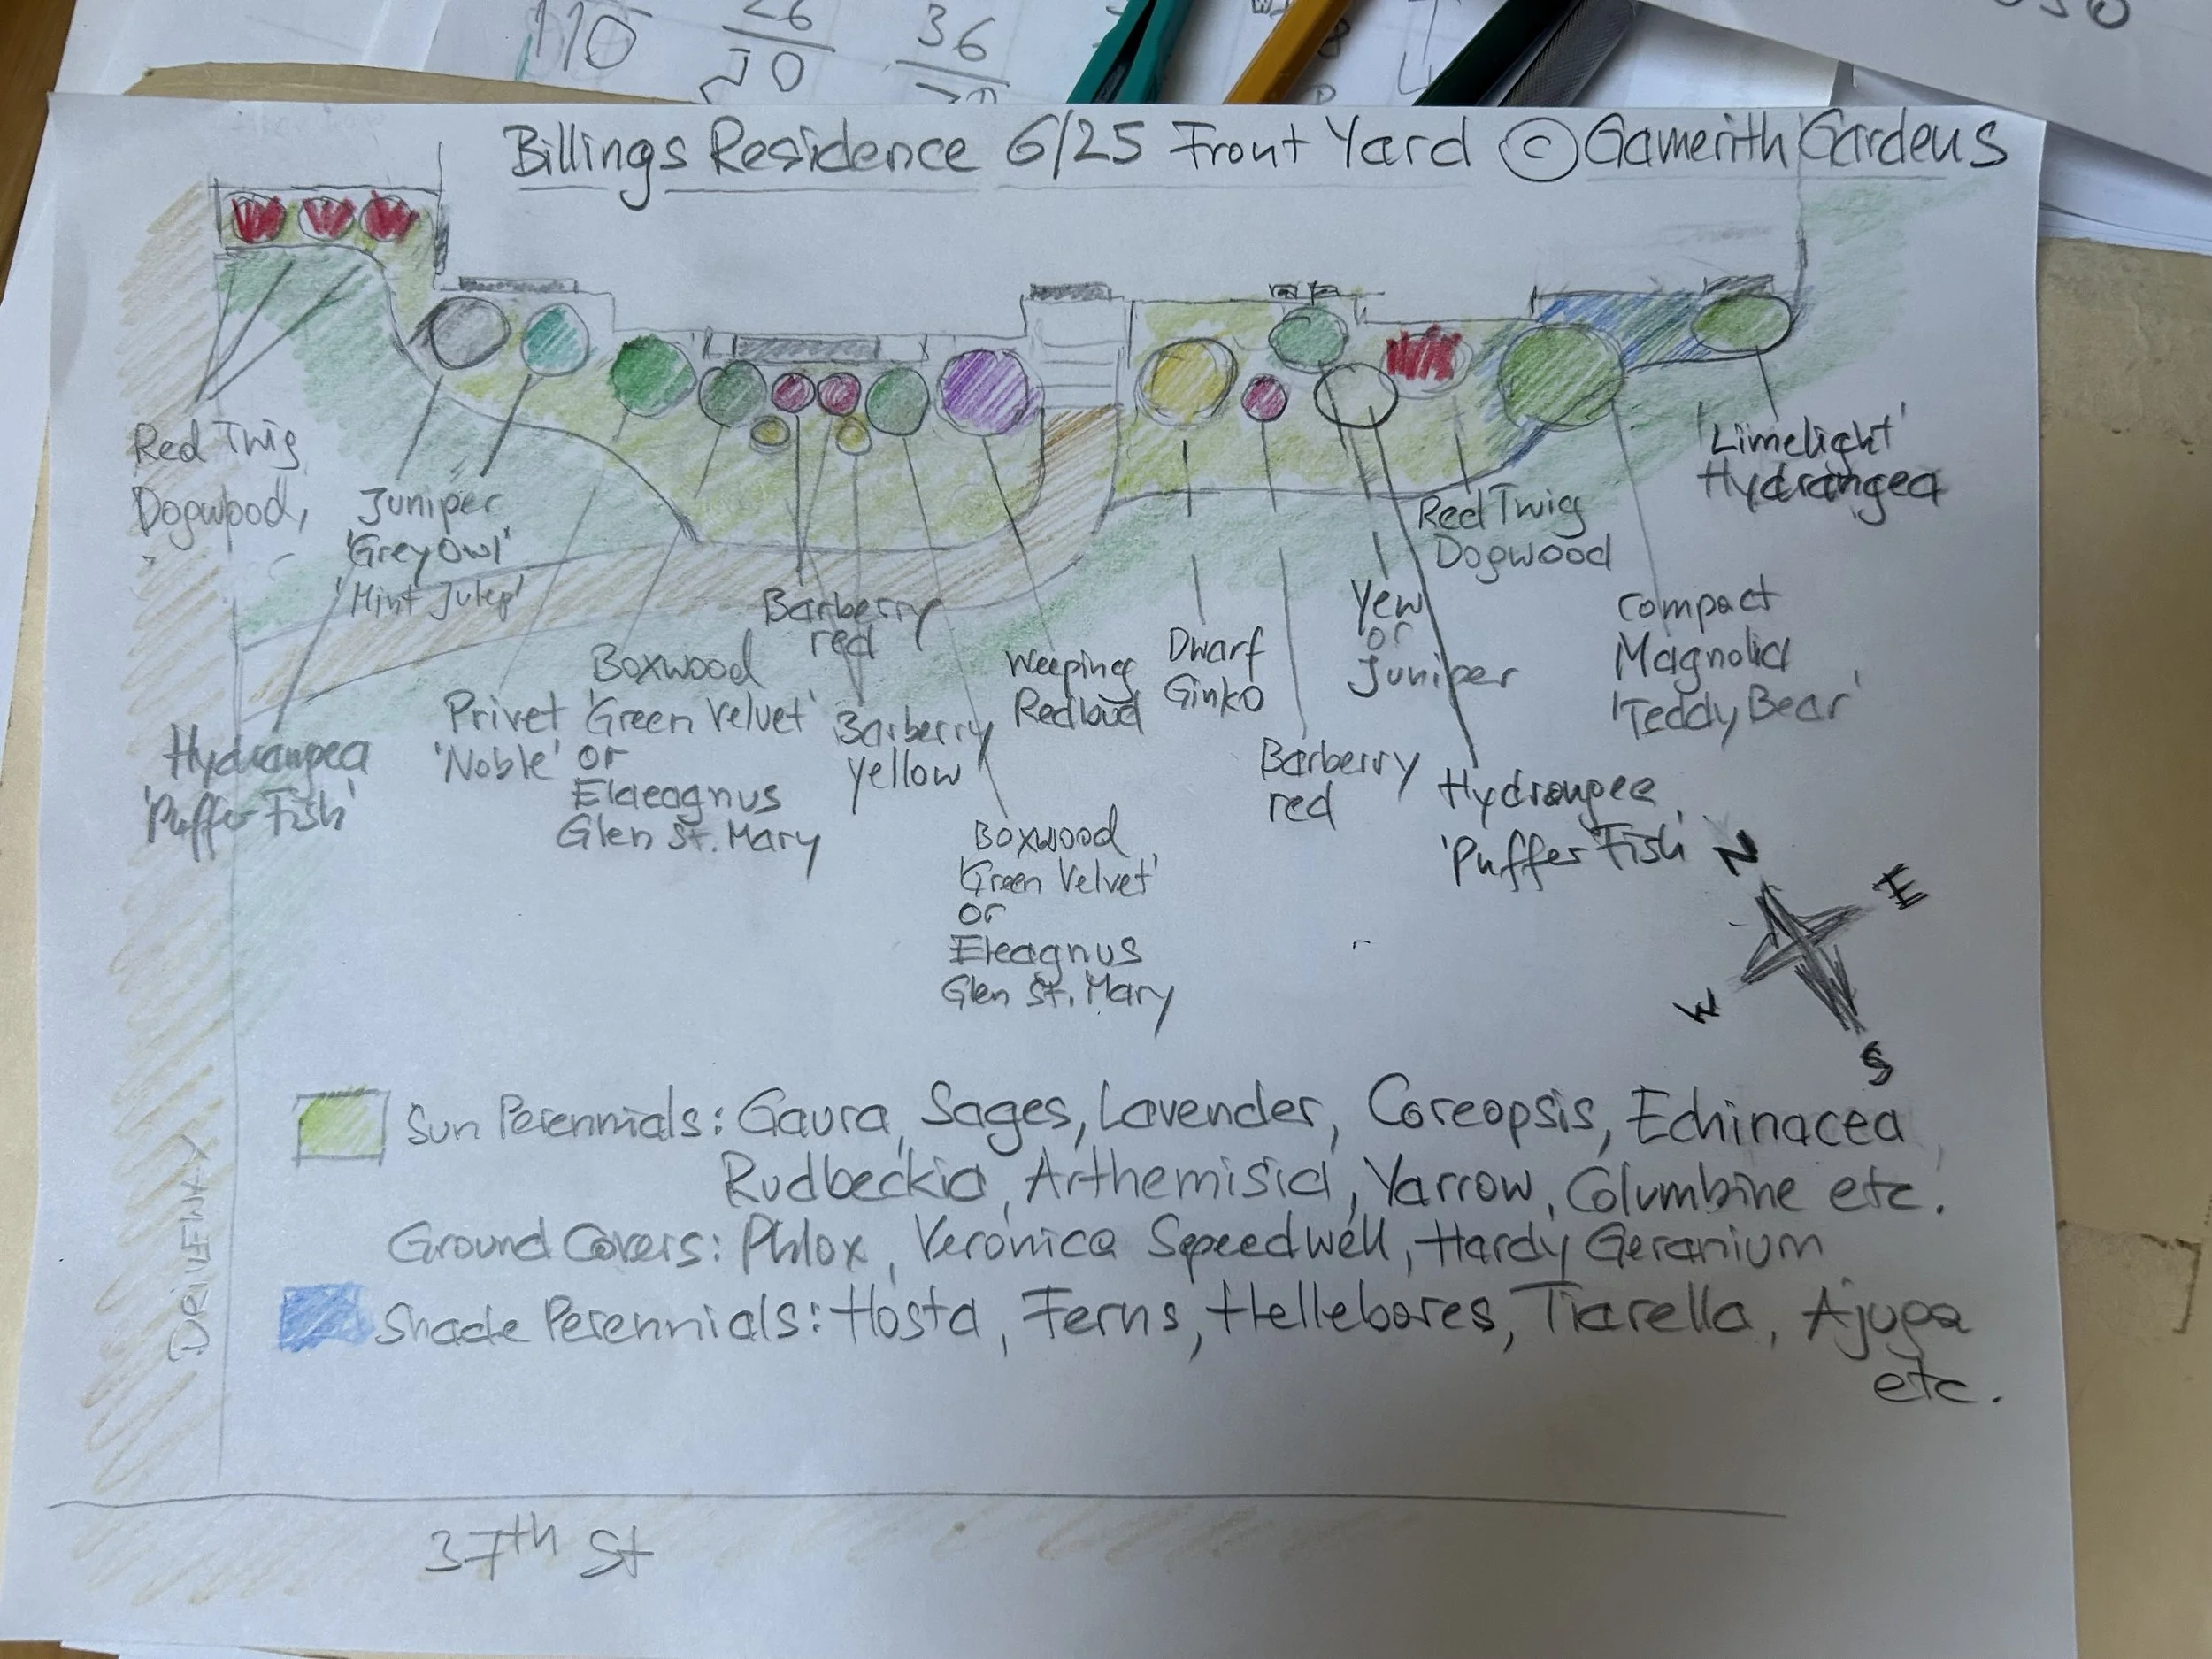 110
26
70
36
Billings Residence 6/25 Front Yard © Gamerith Gardens
Red Twig
Dogwood,
Juniper
'Grey Owl'
'Mint Julep'
Hydrangea
'Puffer Fish'
Privet
'Noble'
Boxwood
'Green Velvet'
or
Elaeagnus
Glen St. Mary
Barberry
red
Barberry
yellow
Boxwood
'Green Velvet'
or
Eleagnus
Glen St. Mary
Weeping
Redbud
Dwarf
Ginko
Barberry
red
Yew
or
Juniper
Hydrangea
'Puffer Fish'
Red Twig
Dogwood
Compact
Magnolia
'Teddy Bear'
'Limelight'
Hydrangea
N
E
W
S
Sun Perennials: Gaura, Sages, Lavender, Coreopsis, Echinacea,
Rudbeckia, Arthemisia, Yarrow, Columbine etc.
Ground Covers: Phlox, Veronica Speedwell, Hardy Geranium
Shade Perennials: Hosta, Ferns, Hellebores, Tiarella, Ajuga
etc.
DRIVEWAY
37th St